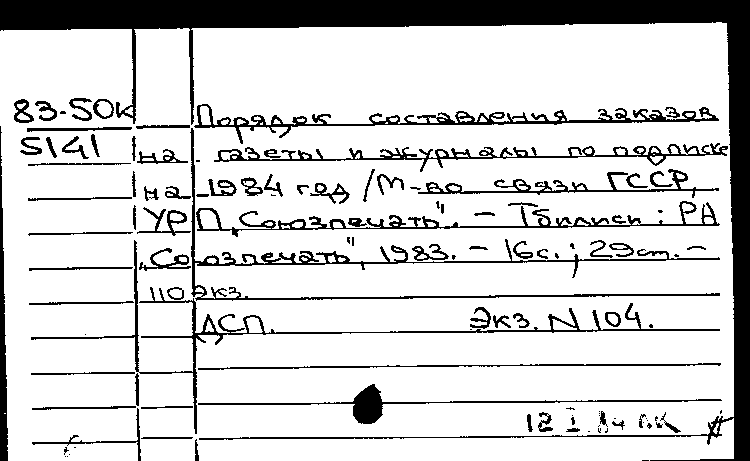 83-50к
5141
Порядок составления заказов
на газеты и журналы по подписке
на 1984 год /М-во связи ГССР,
УРП „Союзпечать". – Тбилиси : РА
„Союзпечать", 1983. – 16с. ; 29см. –
110 экз.
ДСП. Экз. N 104.
12 I 84